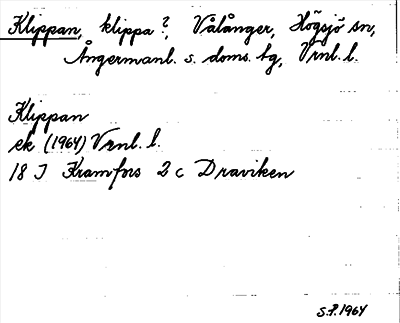 Klippan, klippa?, Valånger, Högsjö sn,
Ångermanl. s. doms. tg, Vrnl. l.
Klippan
ek (1964) Vrnl. l.
18 J Kramfors 2 c Draviken
S.P. 1964